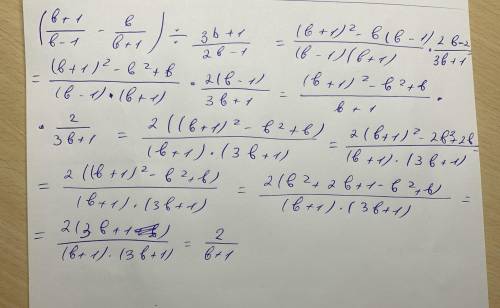 (в+1/в-1 - в/в+1) ÷ 3в+1/2в-1 = (в+1)²-в(в-1)/(в-1)(в+1) · 2в-2/3в+1
= (в+1)²-в²+в/(в-1)·(в+1) · 2(в-1)/3в+1 = (в+1)²-в²+в/в+1 ·
· 2/3в+1 = 2((в+1)²-в²+в)/(в+1)·(3в+1) = 2(в+1)²-2в²+2в/(в+1)·(3в+1)
= 2((в+1)²-в²+в)/(в+1)·(3в+1) = 2(в²+2в+1-в²+в)/(в+1)·(3в+1) =
= 2(3в+1)/(в+1)·(3в+1) = 2/в+1